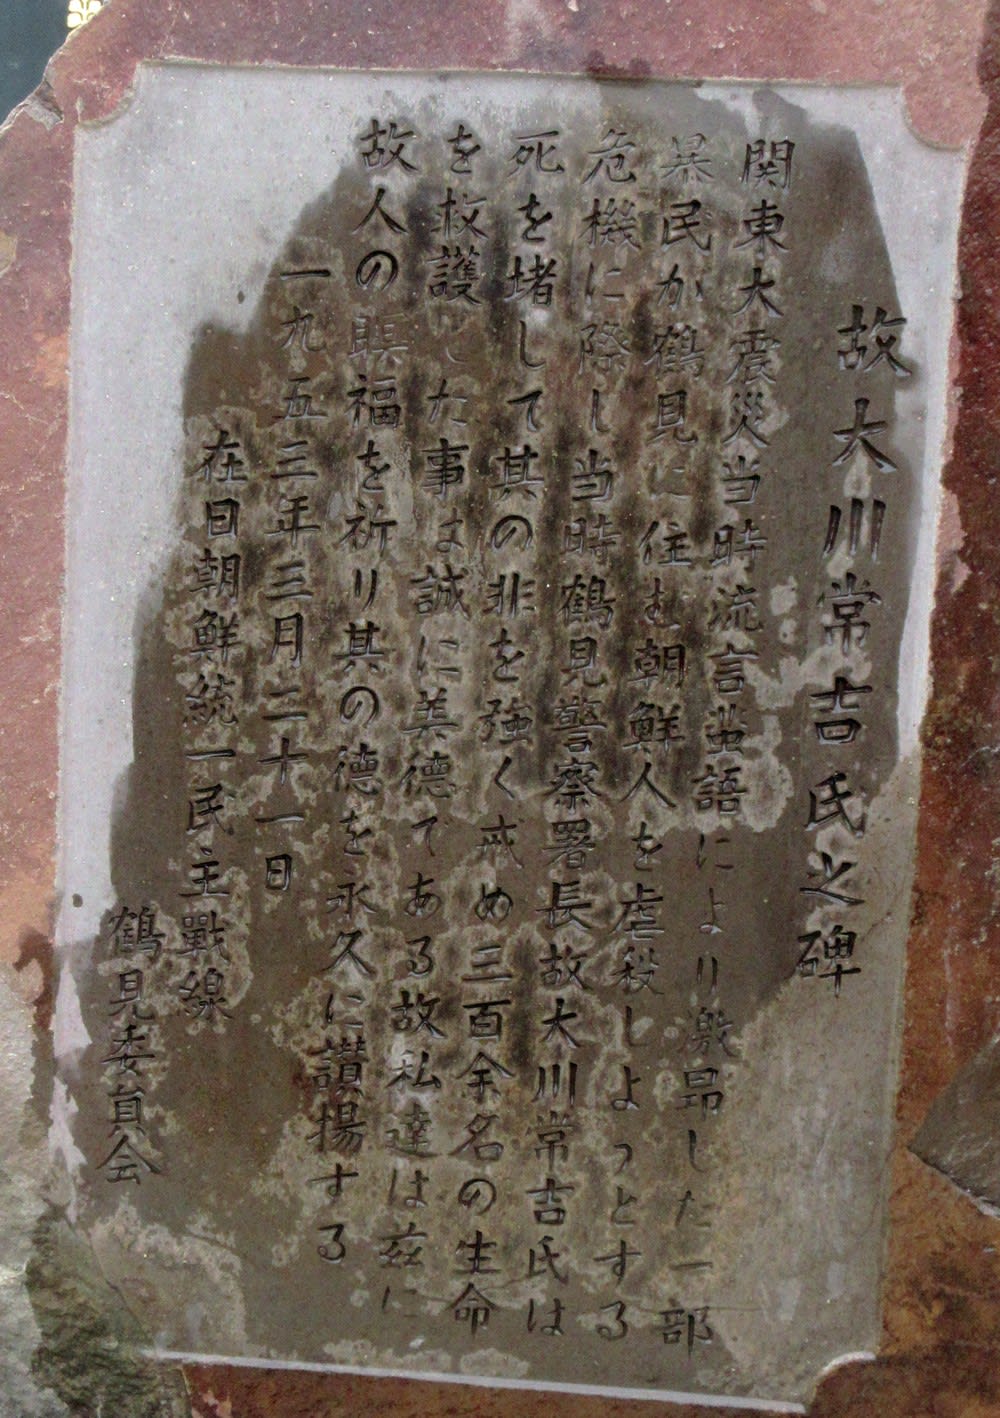 故大川常吉氏之碑
関東大震災当時流言蜚語により激昂した一部
暴民が鶴見に住む朝鮮人を虐殺しようとする
危機に際し当時鶴見警察署長故大川常吉氏は
死を堵して其の非を強く戒め三百余名の生命
を救護した事は誠に美徳である故私達は茲に
故人の瞑福を祈り其の徳を永久に讃揚する
一九五三年三月二十一日
在日朝鮮統一民主戰線
鶴見委員会